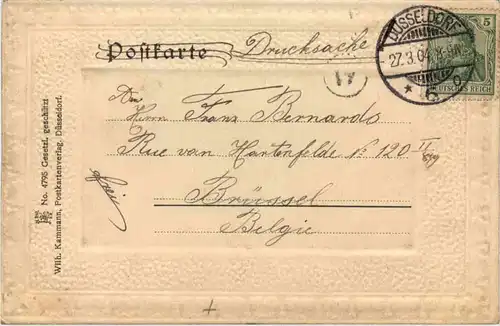 Postkarte Drucksache
DÜSSELDORF
27.3.04
5
DEUTSCHES REICH
An
Herrn Franz Bernardo
Rue van Hantenfelde No 120
Brüssel
Belgie
frei
No. 4795 Gesetzl. geschützt
Wilh. Kammann, Postkartenverlag, Düsseldorf.